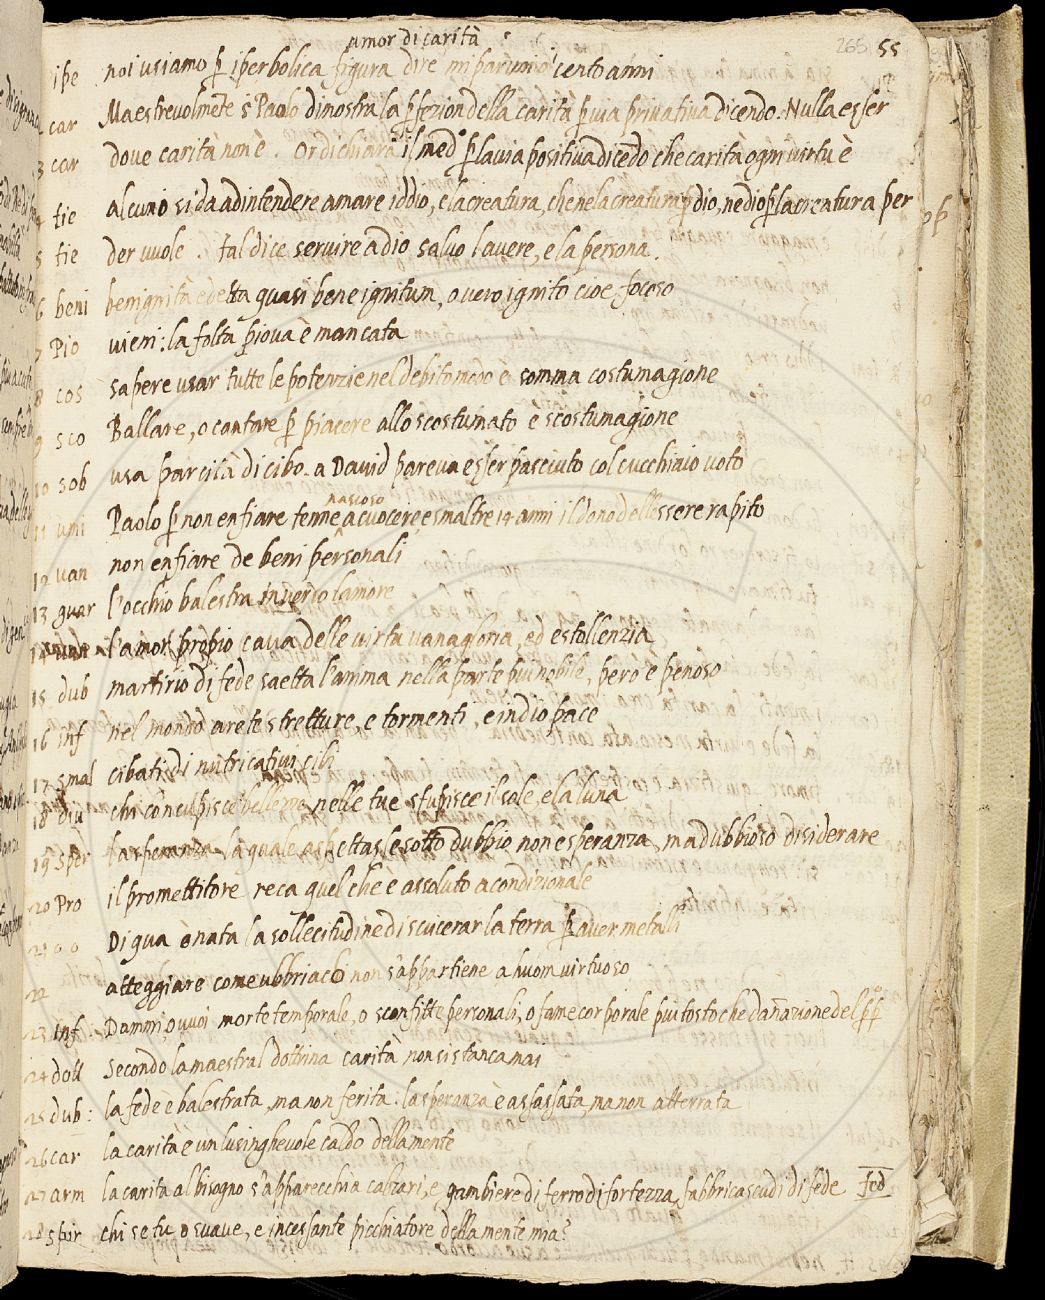 amor di carità
265 55
ipe noi usiamo p iperbolica figura dire mi paruno cento anni
car Maestrevolmēte s Paolo dimostra la pfezion della carità p via privativa dicendo. Nulla esser
3 car dove carità non è. Or dichiara il med° p la via positiva dicēdo che carità ogni virtù è
tie alcuno si da ad intendere amare iddio, e la creatura, che ne la creatura p dio, ne dio p la creatura per
5 tie der vuole. tal dice servire a dio salvo l'avere, e la persona.
6 beni benignità è detta quasi bene ignitum, o vero ignito cioe focoso
7 Pio vieni: la folta piova è mancata
8 cos sapere usar tutte le potenzie nel debito modo è somma costumagione
9 sco Ballare, o cantare p piacere allo scostumato è scostumagione
10 sob usa parcità di cibo. a David pareva esser pasciuto col cucchiaio voto
nascoso
11 umi Paolo p non enfiare tenne a cuocere, e smaltire 14 anni il dono dell essere rapito
12 van non enfiare de beni personali
13 guar l'occhio balestra inverso l'amore
14 l'amor propio cava delle virtu vanagloria, ed estollenzia
15 dub martirio di fede saetta l'anima nella parte piu nobile, pero è penoso
16 inf nel mondo arete stretture, e tormenti, e in dio pace
17 smal cibati di nutricativi cibi
18 div chi concupisce bellezze nelle tue stupisce il sole, e la luna
19 sper la speranza la quale aspettasse sotto dubbio non è speranza, ma dubbioso disiderare
20 Pro il promettitore reca quel che è assoluto a condizionale
21 Di qua è nata la sollecitudine di sviscerar la terra p aver metalli
22 atteggiare come ubbriaco non s'appartiene a huom virtuoso
23 inf Dammi, o vuoi morte temporale, o sconfitte personali, o fame corporale piu tosto che dañazione del pp°
24 dott Secondo la maestral dottrina carità non si stanca mai
25 dub: la fede è balestrata, ma non ferita: la speranza è assassata, ma non atterrata
26 car la carità è un lusinghevole caldo della mente
27 arm la carita al bisogno s'apparecchia calzari, e gambiere di ferro di fortezza, fabbrica scudi di fede fed
28 spir chi se tu o suave, e incessante picchiatore della mente mia?